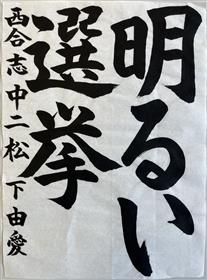 明るい
選挙
西合志中二松下由愛